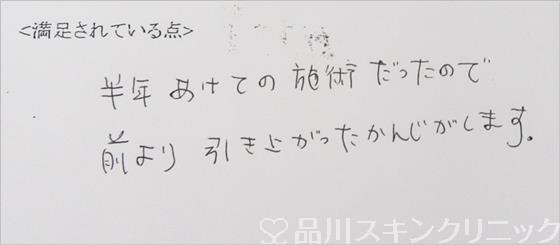 <満足されている点>
半年あけての施術だったので
前より引き上がったかんじがします。
品川スキンクリニック